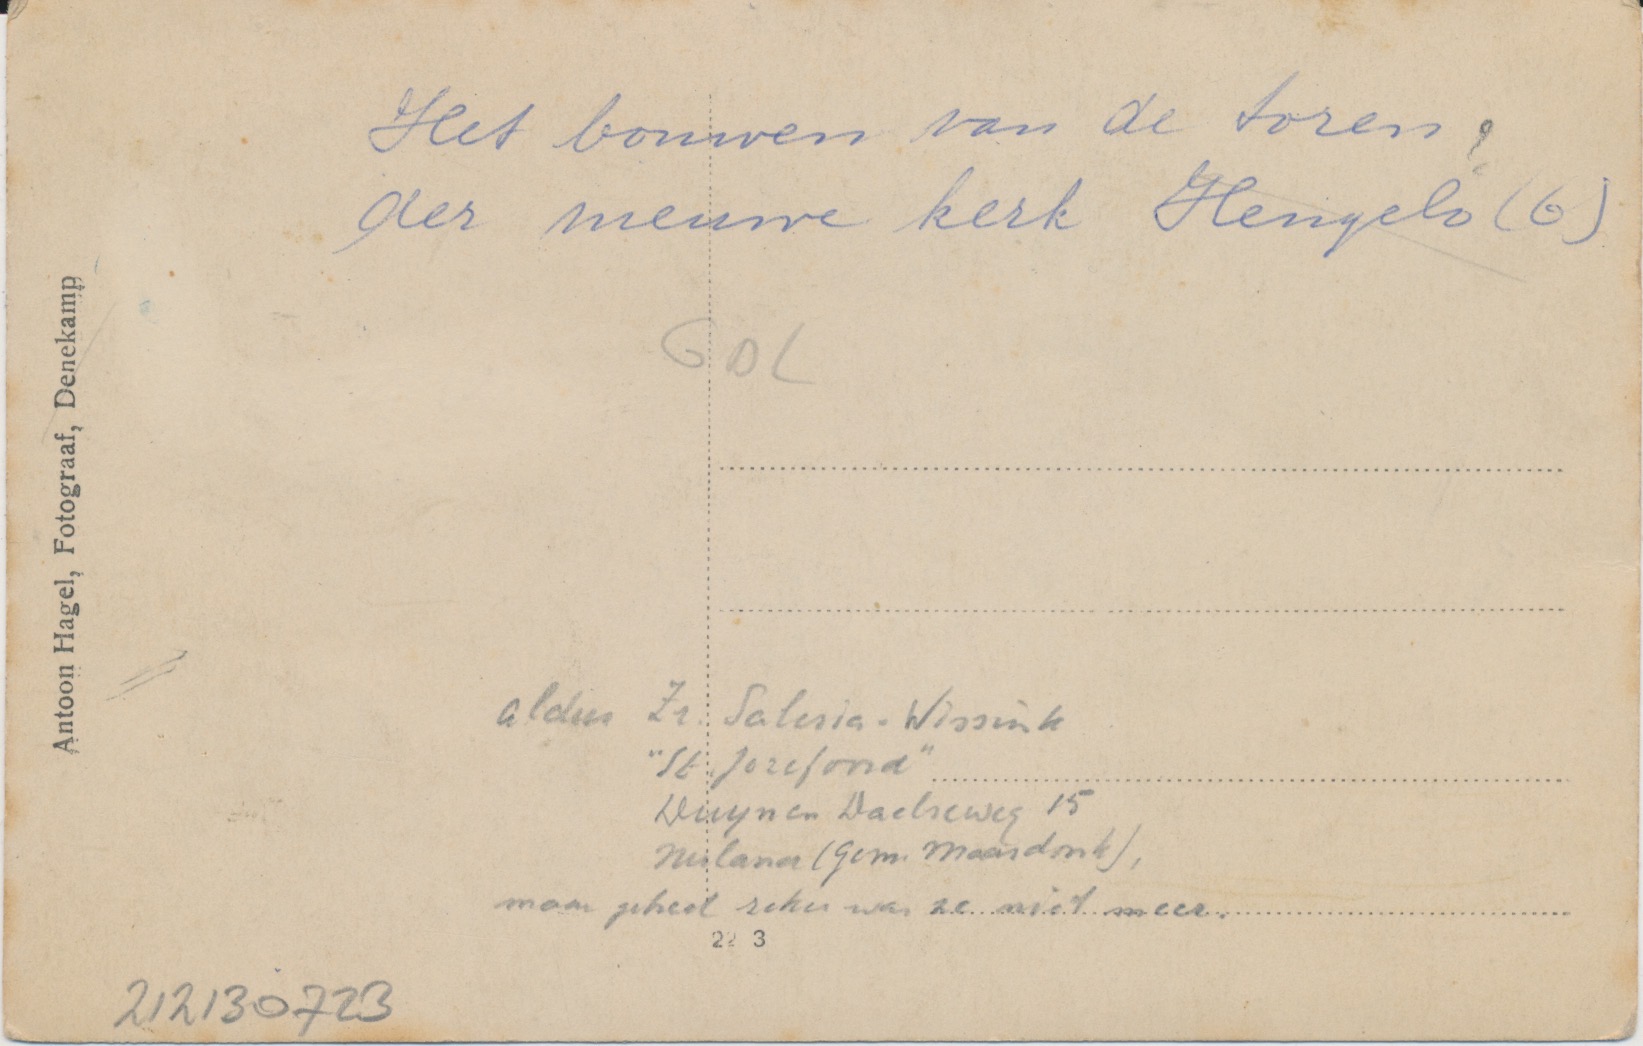 Het bouwen van de toren ?
der nieuwe kerk Hengelo (G)
Antoon Hagel, Fotograaf, Denekamp
GDL
aldus Zr. Salesia-Wissink
"St. Jozefoord"
Nuland (Gem. Maasdonk),
maar geheel zeker was ze niet meer.
22 3
212130723